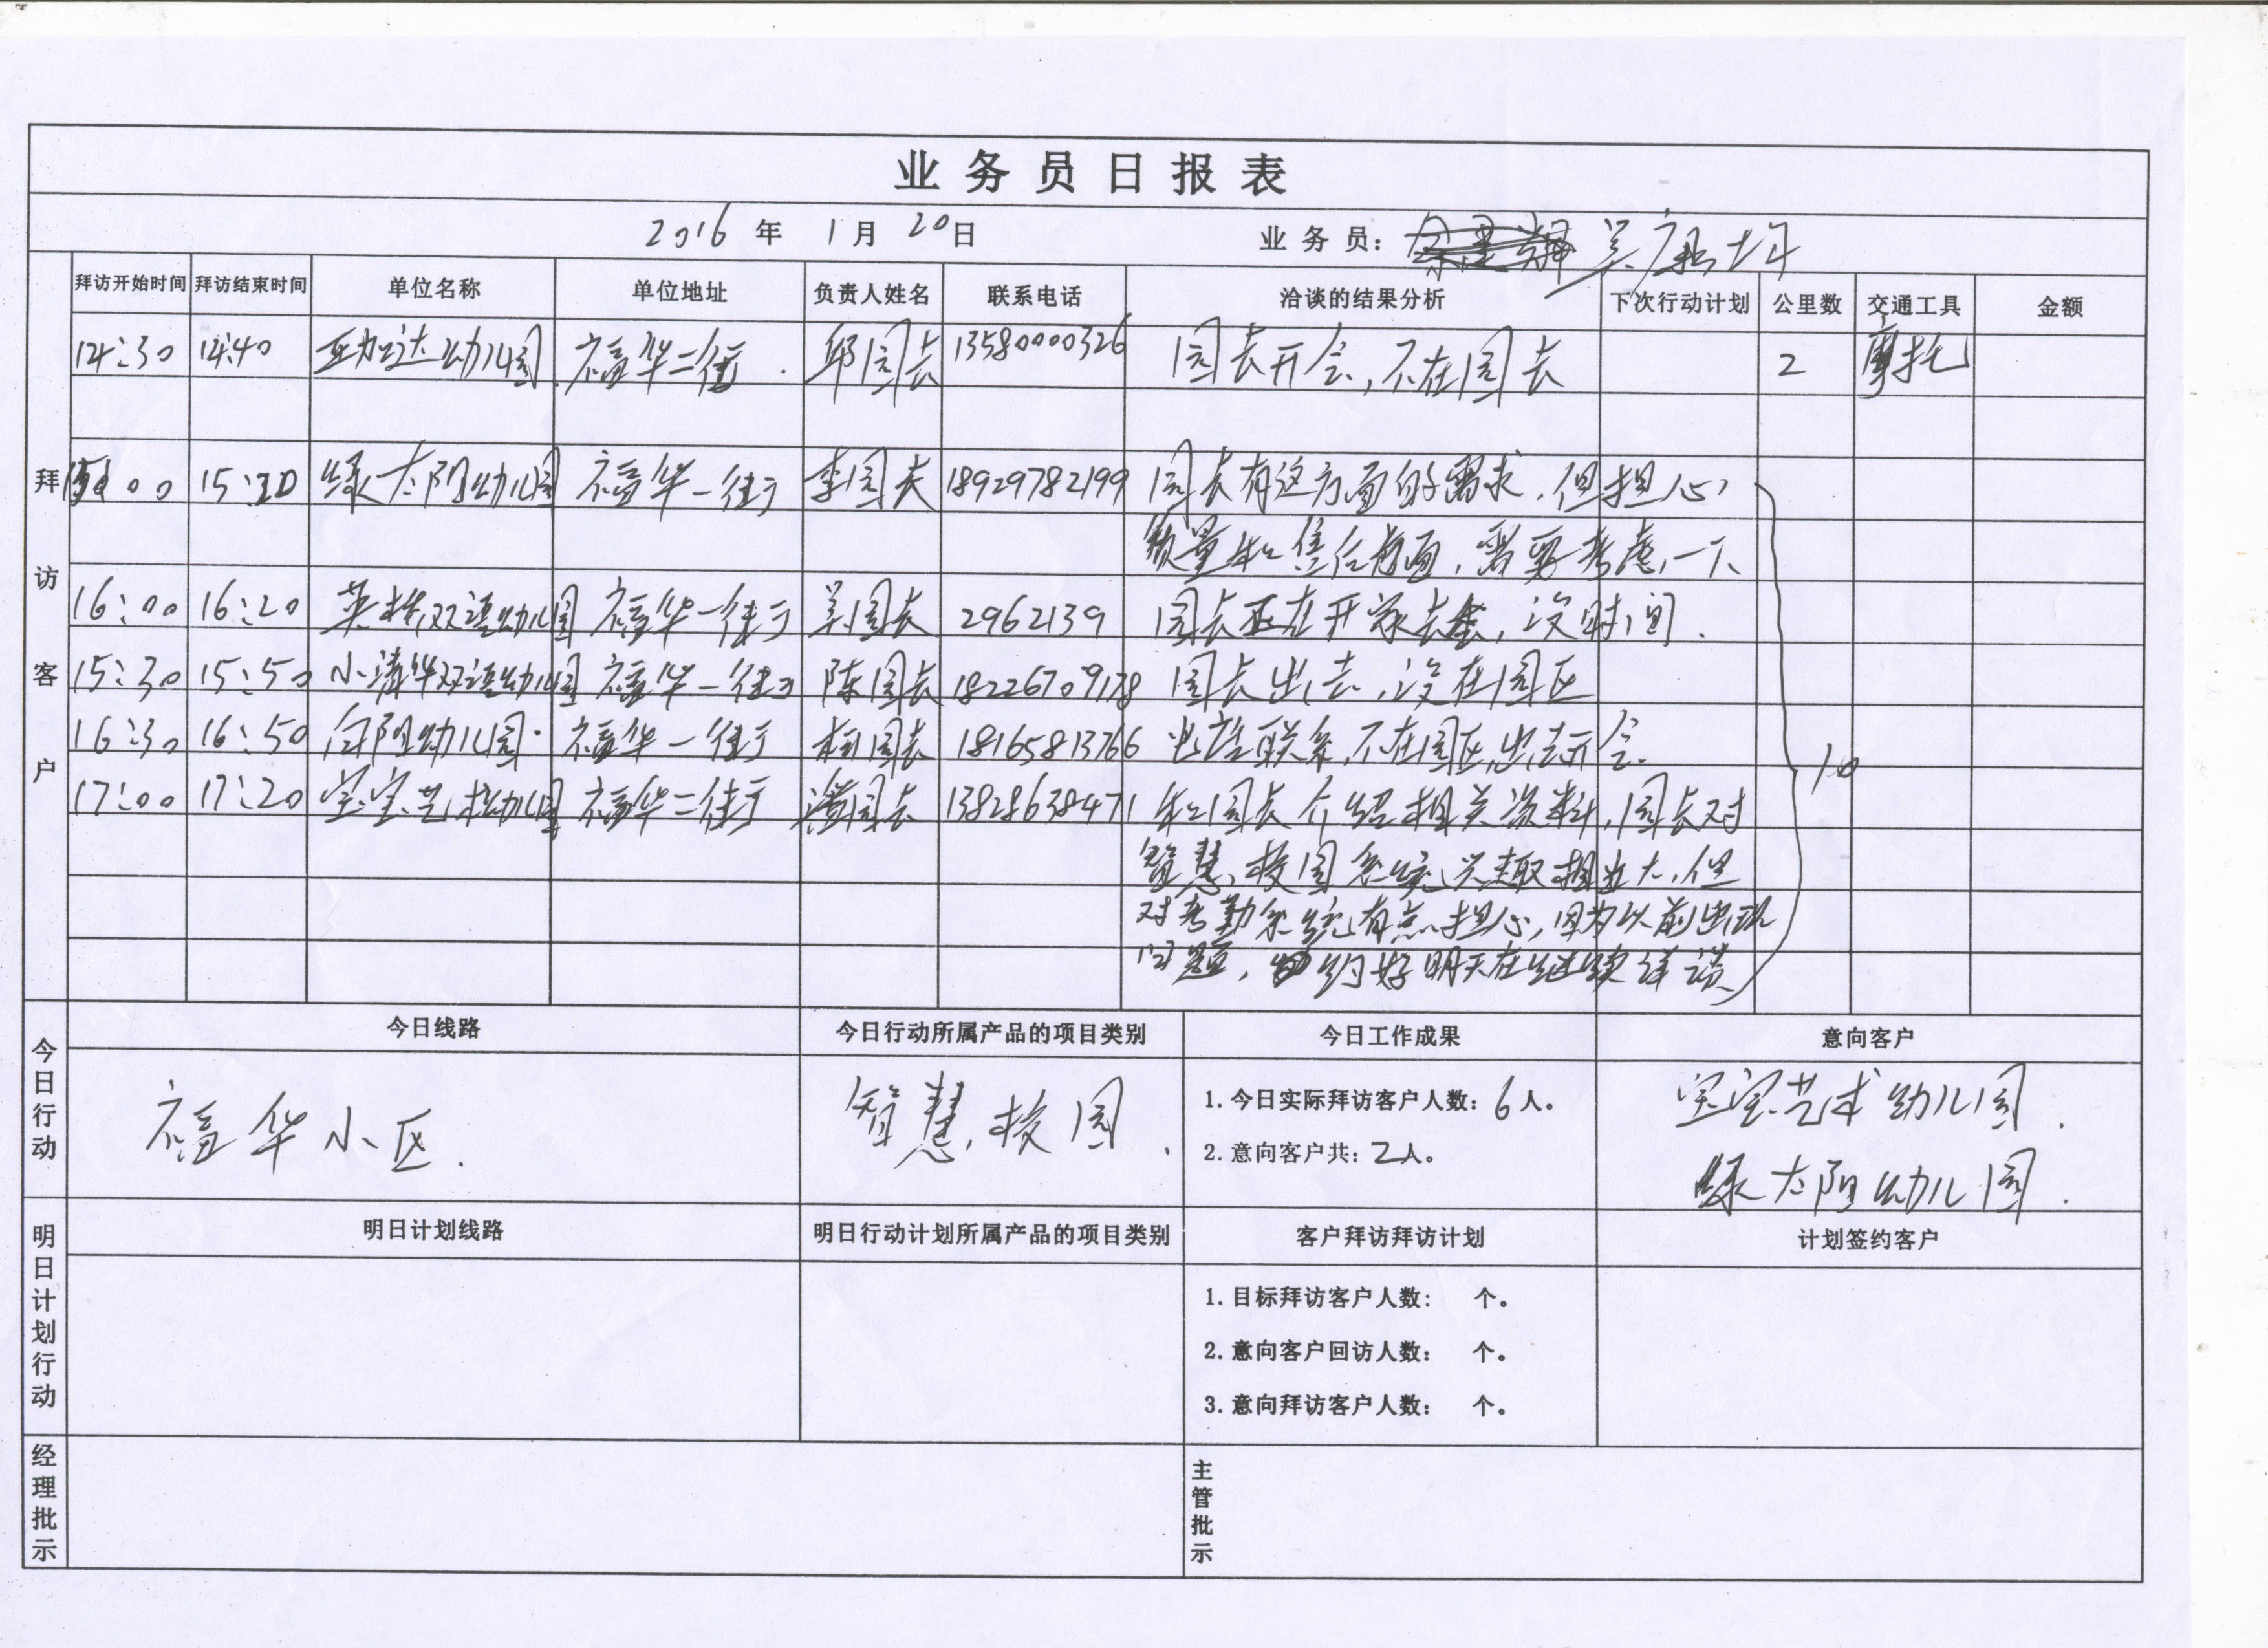 业务员日报表
2016年 1月 20日 业务员: 吴
拜访客户
拜访开始时间 拜访结束时间 单位名称 单位地址 负责人姓名 联系电话 洽谈的结果分析 下次行动计划 公里数 交通工具 金额
14:30 14:40 幼儿园 福华二街 邱园长 13580000326 园长开会,不在园长 2 摩托
15:00 15:20 绿太阳幼儿园 福华一街 李园长 18929782199 园长有这方面的需求,但担心
质量和信任方面,需要考虑一下
16:00 16:20 英才双语幼儿园 福华一街 吴园长 2962139 园长正在开家长会,没时间.
15:30 15:50 小清华双语幼儿园 福华一街 陈园长 18226709178 园长出去,没在园区
16:30 16:50 向阳幼儿园 福华一街 园长 18165813766 电话联系,不在园区,出去开会. 10
17:00 17:20 宝宝艺术幼儿园 福华二街 潘园长 13828638471 和园长介绍相关资料,园长对
智慧校园系统兴趣相当大,但
对考勤系统有点担心,因为以前出现
问题,约好明天在继续详谈
今日行动
今日线路 今日行动所属产品的项目类别 今日工作成果 意向客户
福华小区. 智慧校园.
1.今日实际拜访客户人数: 6人。
2.意向客户共: 2人。
宝宝艺术幼儿园.
绿太阳幼儿园.
明日计划行动
明日计划线路 明日行动计划所属产品的项目类别 客户拜访拜访计划 计划签约客户
1.目标拜访客户人数: 个。
2.意向客户回访人数: 个。
3.意向拜访客户人数: 个。
经理批示 主管批示